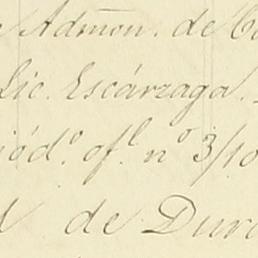 Admon. de
Lic. Escárzaga.
iód.º of.l nº 3/10
de Dura